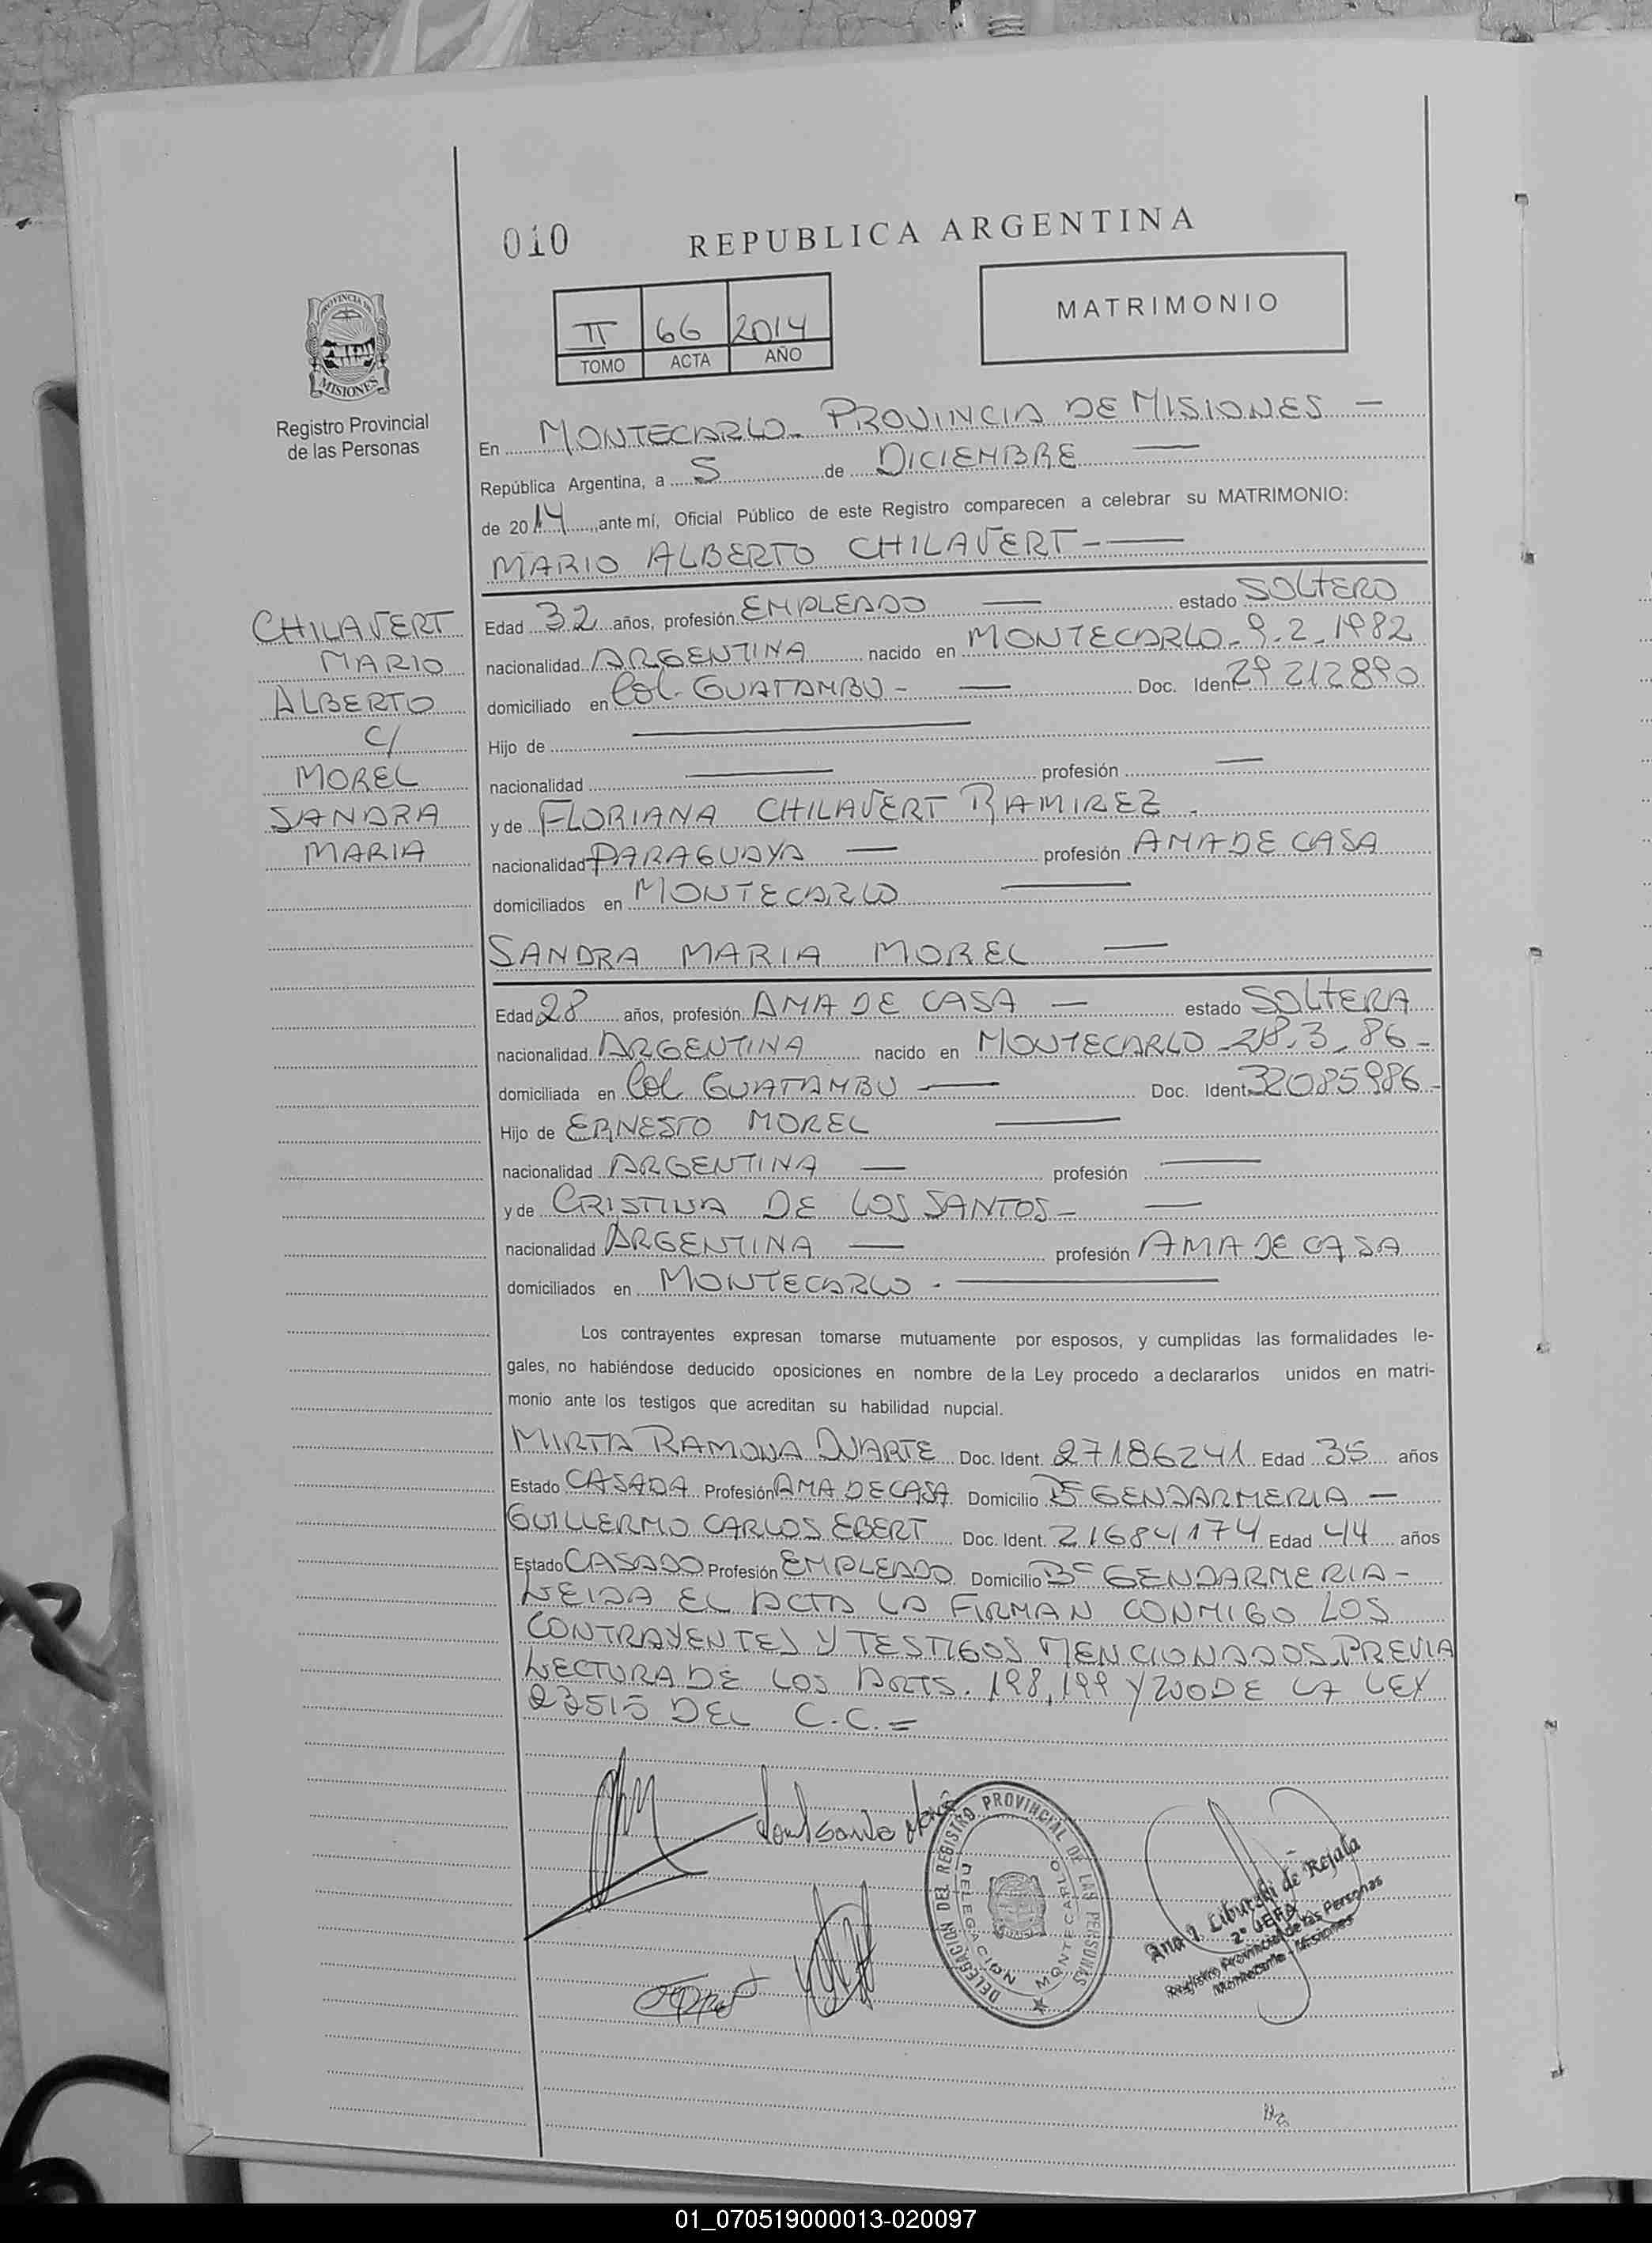 010
REPUBLICA ARGENTINA
PROVINCIA DE
MISIONES
Registro Provincial
de las Personas
II 66 2014
TOMO ACTA AÑO
MATRIMONIO
En MONTECARLO - PROVINCIA DE MISIONES —
República Argentina, a 5 de DICIEMBRE —
de 2014, ante mí, Oficial Público de este Registro comparecen a celebrar su MATRIMONIO:
MARIO ALBERTO CHILAVERT - —
CHILAVERT
MARIO
ALBERTO
C/
MOREL
SANDRA
MARIA
Edad 32 años, profesión EMPLEADO — estado SOLTERO
nacionalidad ARGENTINA nacido en MONTECARLO - 9 . 2 . 1982
domiciliado en Col. GUATAMBU - — Doc. Ident. 29 212890
Hijo de —
nacionalidad — profesión —
y de FLORIANA CHILAVERT RAMIREZ .
nacionalidad PARAGUAYA — profesión AMA DE CASA
domiciliados en MONTECARLO —
SANDRA MARIA MOREL —
Edad 28 años, profesión AMA DE CASA — estado SOLTERA
nacionalidad ARGENTINA nacido en MONTECARLO - 28. 3 . 86 -
domiciliada en Col GUATAMBU — Doc. Ident. 32085986 -
Hijo de ERNESTO MOREL —
nacionalidad ARGENTINA — profesión —
y de CRISTINA DE LOS SANTOS - —
nacionalidad ARGENTINA — profesión AMA DE CASA
domiciliados en MONTECARLO - —
Los contrayentes expresan tomarse mutuamente por esposos, y cumplidas las formalidades le-
gales, no habiéndose deducido oposiciones en nombre de la Ley procedo a declararlos unidos en matri-
monio ante los testigos que acreditan su habilidad nupcial.
MIRTA RAMONA DUARTE Doc. Ident. 27186241 Edad 35 años
Estado CASADA Profesión AMA DE CASA Domicilio Bº GENDARMERIA —
GUILLERMO CARLOS EBERT Doc. Ident. 21684174 Edad 44 años
Estado CASADO Profesión EMPLEADO Domicilio Bº GENDARMERIA -
LEIDA EL ACTA LA FIRMAN CONMIGO LOS
CONTRAYENTES Y TESTIGOS MENCIONADOS, PREVIA
LECTURA DE LOS ARTS. 198, 199 Y 200 DE LA LEY
23515 DEL C.C. =
DELEGACION DEL REGISTRO PROVINCIAL DE LAS PERSONAS
DELEGACION MONTECARLO
Ana I. de Rejala
2º JEFA
Registro Provincial de las Personas
Montecarlo - Misiones
01_070519000013-020097